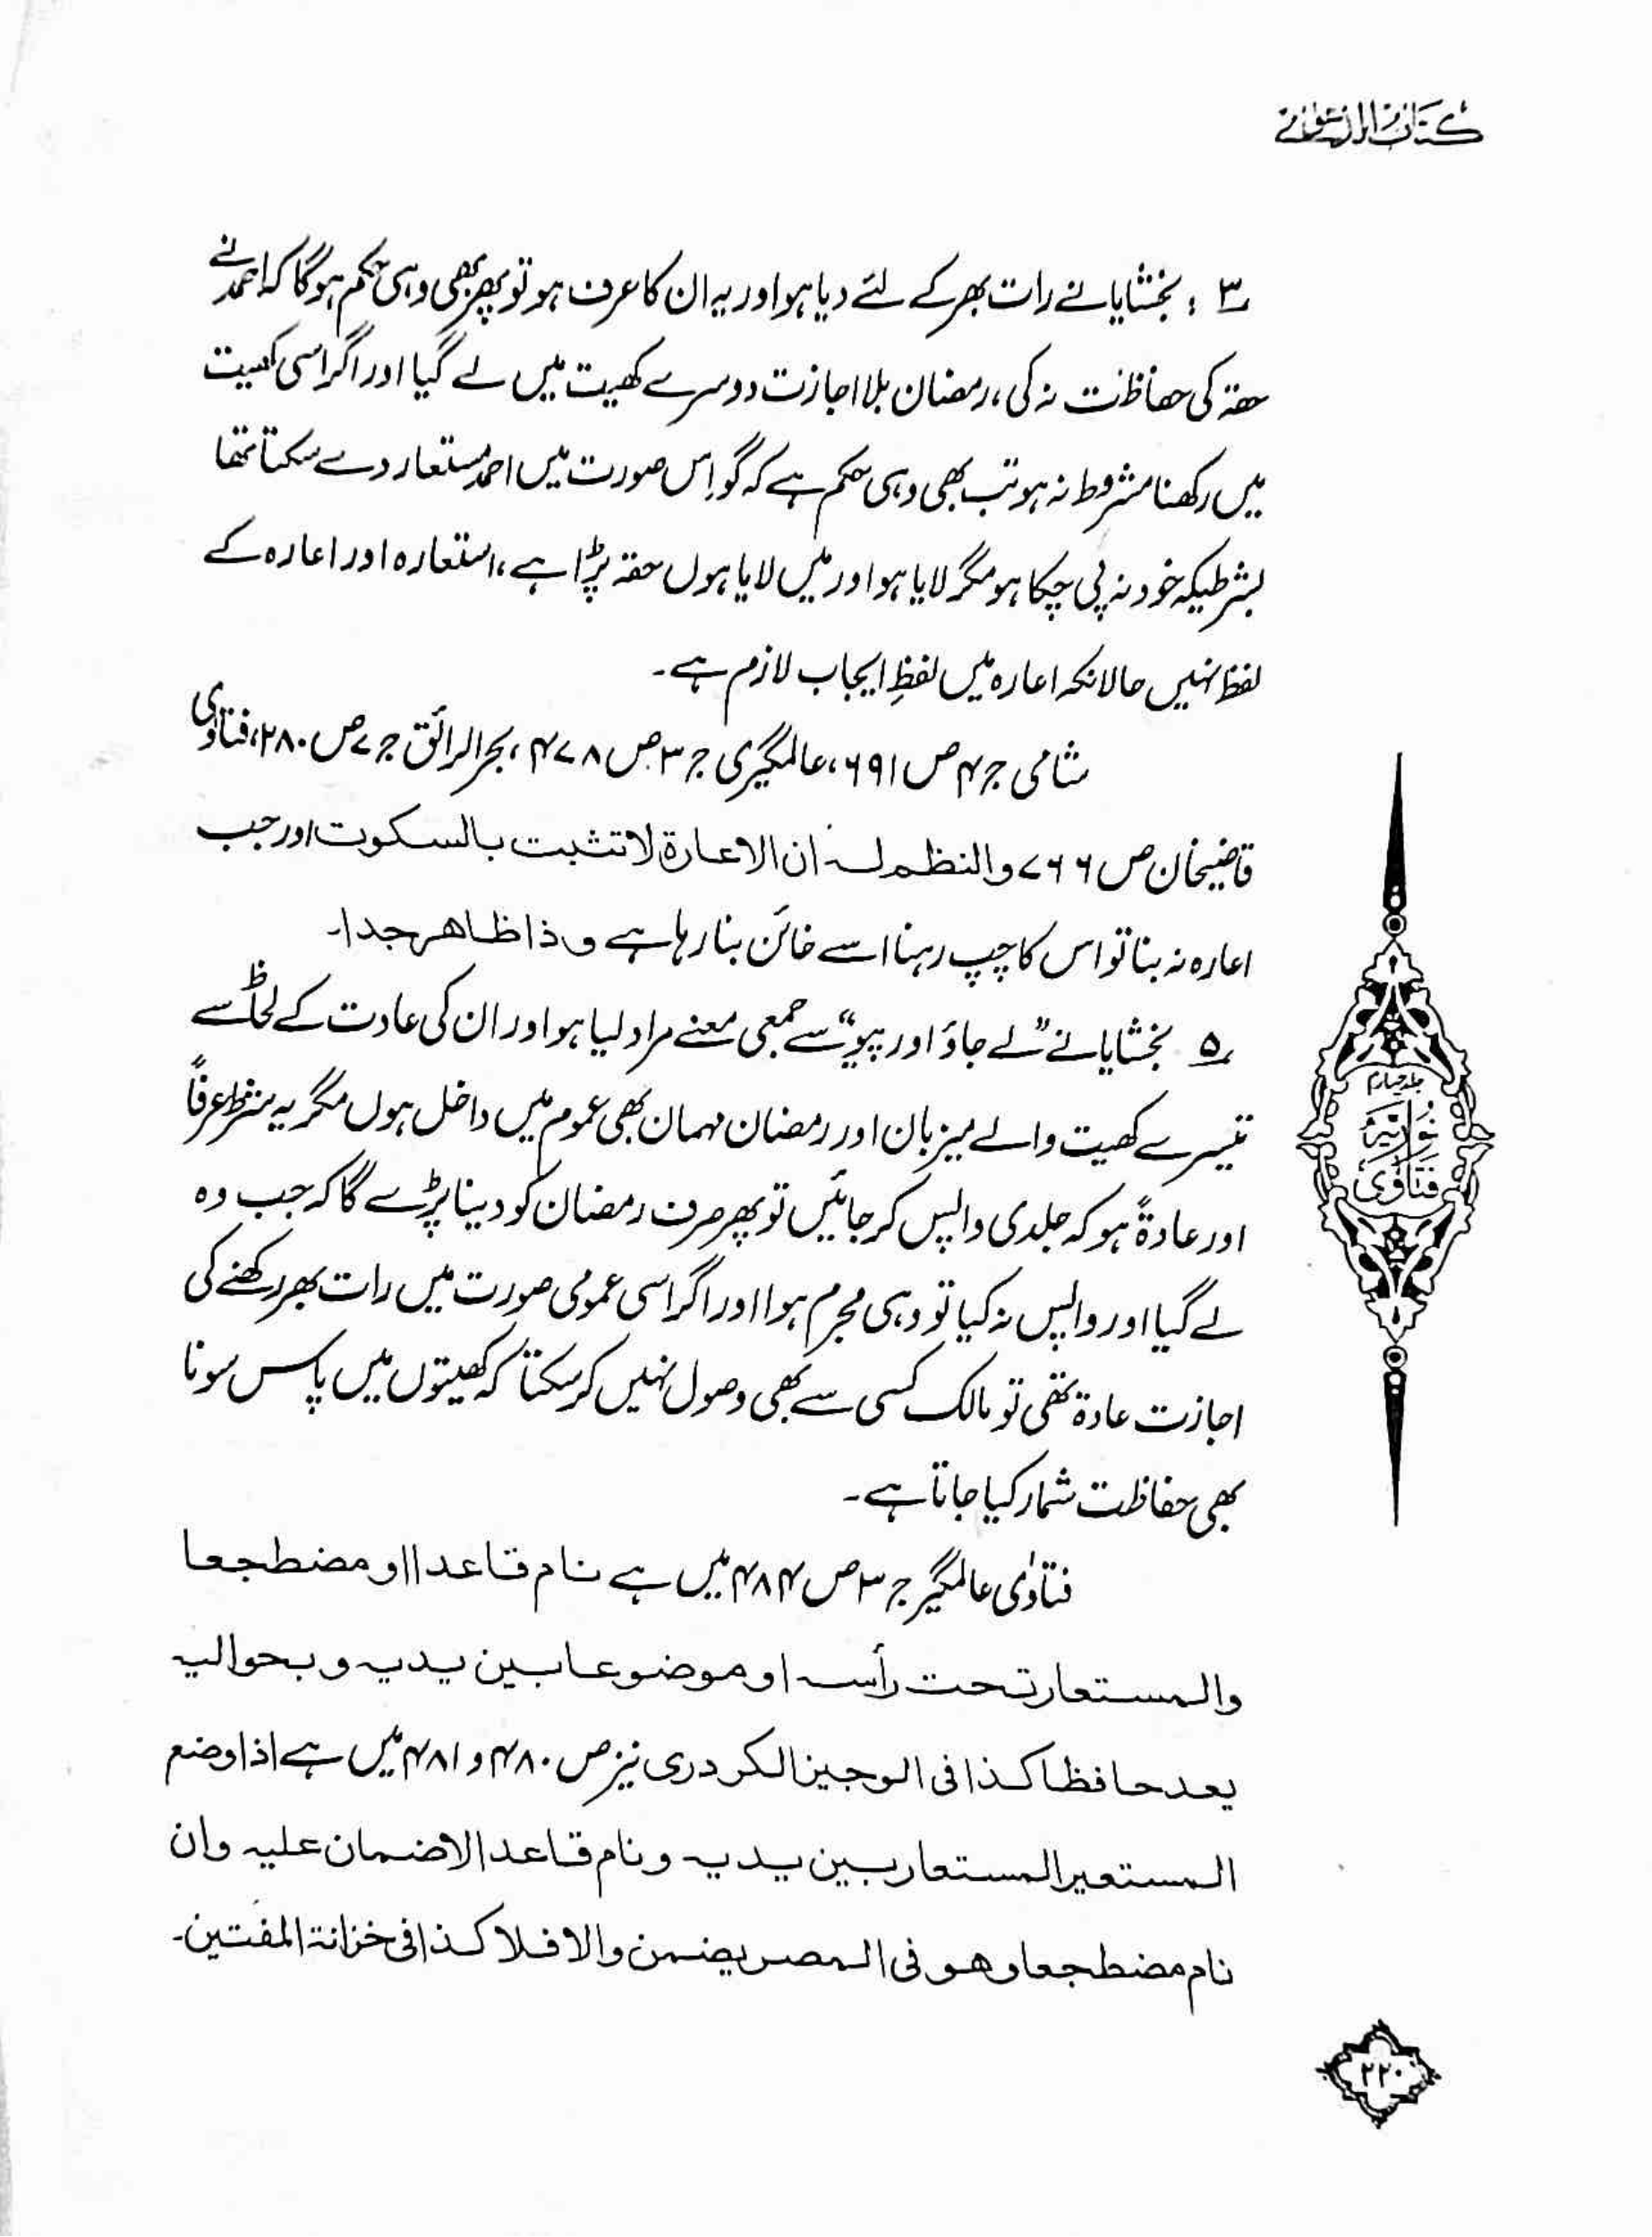 ۳؎ : بخشایا نے رات بھر کے لئے دیا ہو اور یہ ان کا عرف ہو تو پھر بھی وہی حکم ہوگا کہ احمد نے
حقہ کی حفاظت نہ کی، رمضان بلا اجازت دوسرے کھیت میں لے گیا اور اگر اسی کھیت
میں رکھنا مشروط نہ ہو تب بھی وہی حکم ہے کہ گو اِس صورت میں احمد مستعار دے سکتا تھا
بشرطیکہ خود نہ پی چکا ہو مگر لایا ہو اور میں لایا ہوں حقہ پڑا ہے، استعارہ اور اعارہ کے
لفظ نہیں حالانکہ اعارہ میں لفظِ ایجاب لازم ہے۔
شامی ج ۴ ص ۶۹۱، عالمگیری ج ۳ ص ۴۷۸، بحر الرائق ج ۷ ص ۲۸۰، فتاوٰی
قاضیخان ص ۷۶۶ والنظم لہ ان الاعارة لا تثبت بالسکوت اور جب
اعارہ نہ بنا تو اس کا چپ رہنا اسے خائن بنا رہا ہے و ذا ظاھر جدا۔
۵؎ بخشایا نے ”لے جاؤ اور پیو“ سے جمعی معنے مراد لیا ہو اور ان کی عادت کے لحاظ سے
تیسرے کھیت والے میزبان اور رمضان مہمان بھی عموم میں داخل ہوں مگر یہ شرط عرفاً
اور عادۃً ہو کہ جلدی واپس کر جائیں تو پھر صرف رمضان کو دینا پڑے گا کہ جب وہ
لے گیا اور واپس نہ کیا تو وہی مجرم ہوا اور اگر اسی عمومی صورت میں رات بھر رکھنے کی
اجازت عادۃ تھی تو مالک کسی سے بھی وصول نہیں کر سکتا کہ کھیتوں میں پاس سونا
بھی حفاظت شمار کیا جاتا ہے۔
جلد چہارم
فتاوٰی نوریہ
فتاوٰی عالمگیر ج ۳ ص ۴۸۴ میں ہے نام قاعدا او مضطجعا
والمستعار تحت رأسہ او موضوعا بین یدیہ و بحوالیہ
یعد حافظا کذا فی الوجیز الکردری نیز ص ۴۸۰ و ۴۸۱ میں ہے اذا وضع
المستعیر المستعار بین یدیہ و نام قاعدا لا ضمان علیہ وان
نام مضطجعا و ھو فی المصر یضمن والا فلا کذا فی خزانۃ المفتین۔
۲۲۰